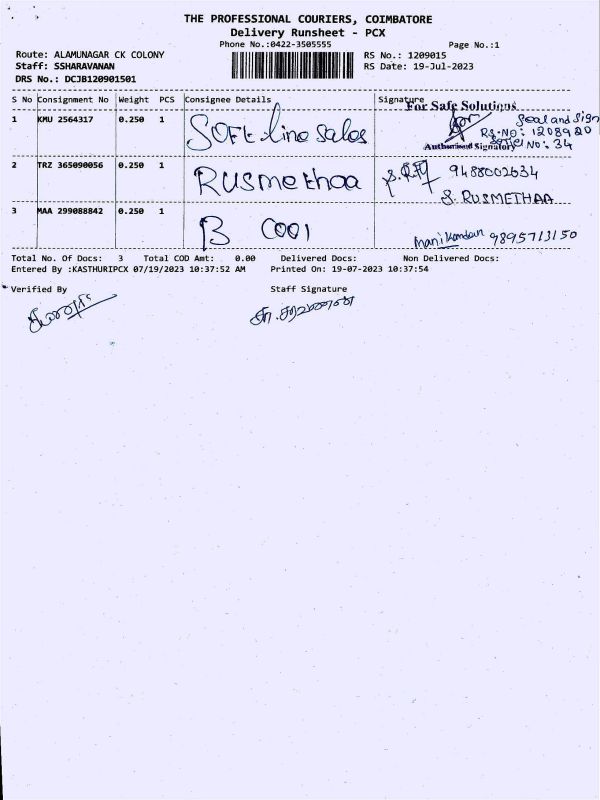 THE PROFESSIONAL COURIERS, COIMBATORE
Delivery Runsheet - PCX
Phone No.:0422-3505555 Page No.:1
Route: ALAMUNAGAR CK COLONY RS No.: 1209015
Staff: SSHARAVANAN RS Date: 19-Jul-2023
DRS No.: DCJB120901501
S No Consignment No Weight PCS Consignee Details Signature
For Safe Solutions
1 KMU 2564317 0.250 1 Soft line sales Seal and Sign
RS-NO: 1208920
Authorised Signatory NO: 34
2 TRZ 365090056 0.250 1 Rusmethaa 9488002634
S. RUSMETHAA
3 MAA 299088842 0.250 1 B COOl
Manikandan 9895713150
Total No. Of Docs: 3 Total COD Amt: 0.00 Delivered Docs: Non Delivered Docs:
Entered By :KASTHURIPCX 07/19/2023 10:37:52 AM Printed On: 19-07-2023 10:37:54
Verified By Staff Signature